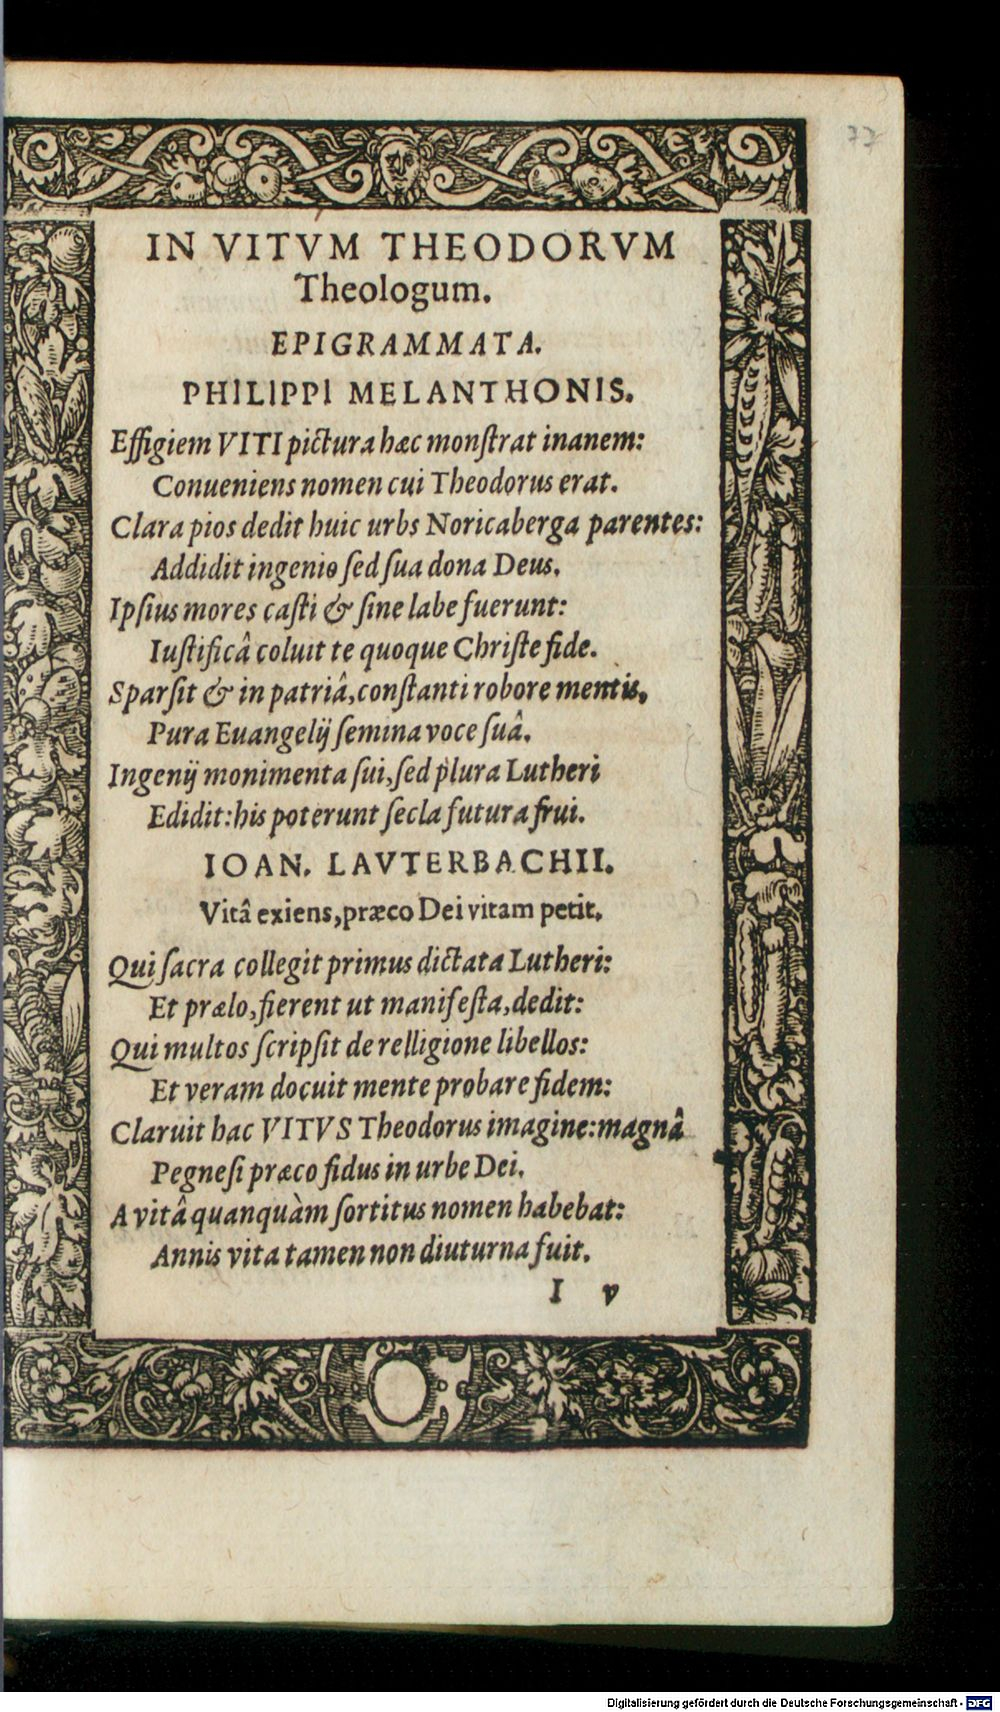 77
IN VITVM THEODORVM
Theologum.
EPIGRAMMATA.
PHILIPPI MELANTHONIS.
Effigiem VITI pictura hæc monſtrat inanem:
Conueniens nomen cui Theodorus erat.
Clara pios dedit huic urbs Noricaberga parentes:
Addidit ingenio ſed ſua dona Deus.
Ipſius mores caſti & ſine labe fuerunt:
Iuſtificâ coluit te quoque Chriſte fide.
Sparſit & in patriâ, conſtanti robore mentis,
Pura Euangelij ſemina voce ſuâ.
Ingenij monimenta ſui, ſed plura Lutheri
Edidit: his poterunt ſecla futura frui.
IOAN. LAVTERBACHII.
Vitâ exiens, præco Dei vitam petit.
Qui ſacra collegit primus dictata Lutheri:
Et prælo, fierent ut manifeſta, dedit:
Qui multos ſcripſit de relligione libellos:
Et veram docuit mente probare fidem:
Claruit hac VITVS Theodorus imagine: magnâ
Pegneſi præco fidus in urbe Dei.
A vitâ quanquàm ſortitus nomen habebat:
Annis vita tamen non diuturna fuit.
I v
Digitalisierung gefördert durch die Deutsche Forschungsgemeinschaft - DFG